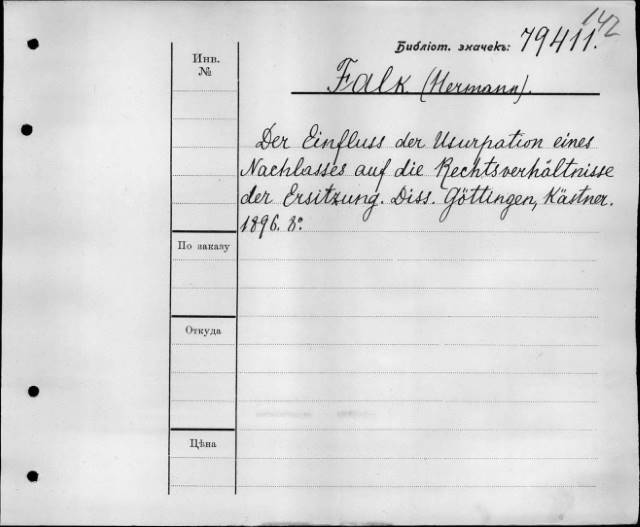 142
Библіот. значекъ: 79411.
Инв.
№
Falk (Hermann).
Der Einfluss der Usurpation eines
Nachlasses auf die Rechtsverhältnisse
der Ersitzung. Diss. Göttingen, Kästner.
1896. 8°.
По заказу
Откуда
Цѣна